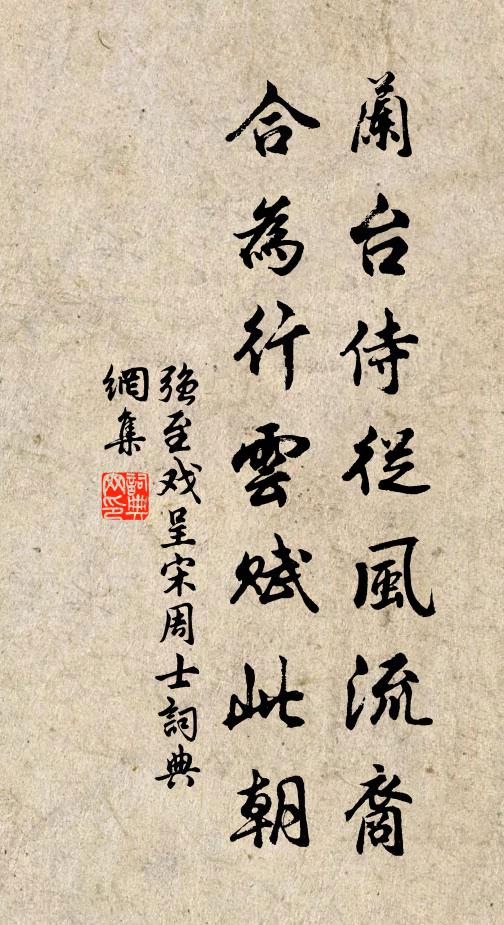 蘭台侍從風流裔
合為行雲賦此朝
強至戏呈宋周士詞典
網集
詞典
网印